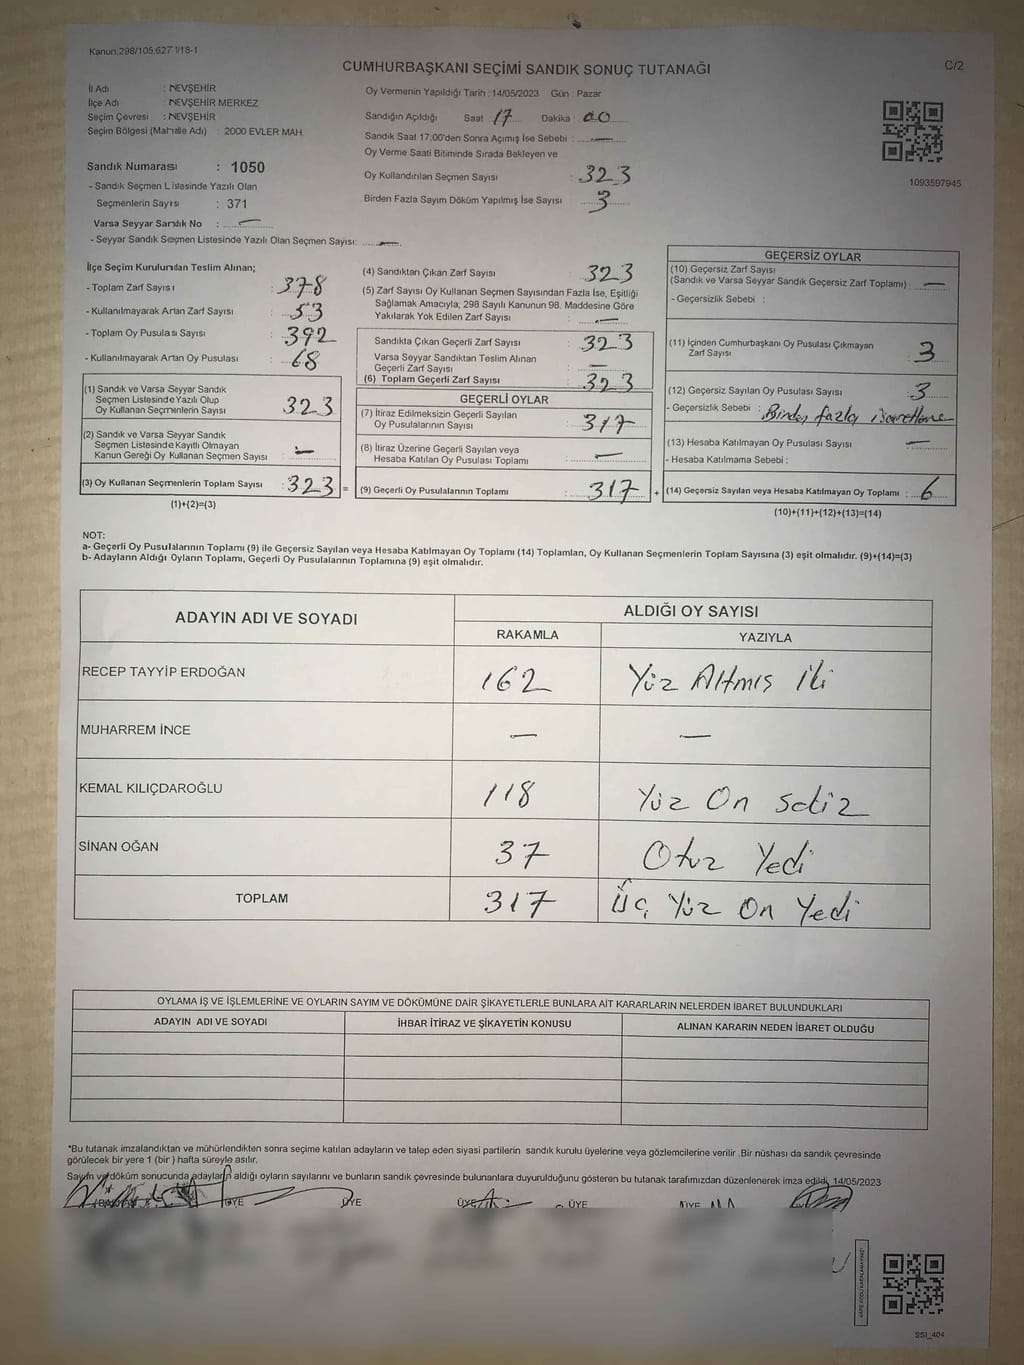 Kanun.298/105,627 1/18-1
CUMHURBAŞKANI SEÇİMİ SANDIK SONUÇ TUTANAĞI
C/2
İl Adı : NEVŞEHİR
İlçe Adı : NEVŞEHİR MERKEZ
Seçim Çevresi : NEVŞEHİR
Seçim Bölgesi (Mahalle Adı) : 2000 EVLER MAH.
Oy Vermenin Yapıldığı Tarih : 14/05/2023 Gün : Pazar
Sandığın Açıldığı Saat : 17 Dakika : 00
Sandık Saat 17:00'den Sonra Açımış İse Sebebi : —
Oy Verme Saati Bitiminde Sırada Bekleyen ve
Oy Kullandırılan Seçmen Sayısı : 323
Birden Fazla Sayım Döküm Yapılmış İse Sayısı : 3
1093597945
Sandık Numarası : 1050
- Sandık Seçmen Listesinde Yazılı Olan
Seçmenlerin Sayısı : 371
Varsa Seyyar Sandık No : —
- Seyyar Sandık Seçmen Listesinde Yazılı Olan Seçmen Sayısı: —
İlçe Seçim Kurulundan Teslim Alınan;
- Toplam Zarf Sayısı : 378
- Kullanılmayarak Artan Zarf Sayısı : 53
- Toplam Oy Pusulası Sayısı : 392
- Kullanılmayarak Artan Oy Pusulası : 68
(1) Sandık ve Varsa Seyyar Sandık
Seçmen Listesinde Yazılı Olup
Oy Kullanan Seçmenlerin Sayısı : 323
(2) Sandık ve Varsa Seyyar Sandık
Seçmen Listesinde Kayıtlı Olmayan
Kanun Gereği Oy Kullanan Seçmen Sayısı : —
(3) Oy Kullanan Seçmenlerin Toplam Sayısı : 323 =
(1)+(2)=(3)
(4) Sandıktan Çıkan Zarf Sayısı : 323
(5) Zarf Sayısı Oy Kullanan Seçmen Sayısından Fazla İse, Eşitliği
Sağlamak Amacıyla; 298 Sayılı Kanunun 98. Maddesine Göre
Yakılarak Yok Edilen Zarf Sayısı : —
Sandıkta Çıkan Geçerli Zarf Sayısı : 323
Varsa Seyyar Sandıktan Teslim Alınan
Geçerli Zarf Sayısı : —
(6) Toplam Geçerli Zarf Sayısı : 323
GEÇERLİ OYLAR
(7) İtiraz Edilmeksizin Geçerli Sayılan
Oy Pusulalarının Sayısı : 317
(8) İtiraz Üzerine Geçerli Sayılan veya
Hesaba Katılan Oy Pusulası Toplamı : —
(9) Geçerli Oy Pusulalarının Toplamı : 317 +
GEÇERSİZ OYLAR
(10) Geçersiz Zarf Sayısı
(Sandık ve Varsa Seyyar Sandık Geçersiz Zarf Toplamı) : —
- Geçersizlik Sebebi :
(11) İçinden Cumhurbaşkanı Oy Pusulası Çıkmayan
Zarf Sayısı : 3
(12) Geçersiz Sayılan Oy Pusulası Sayısı : 3
- Geçersizlik Sebebi : Birden fazla işaretleme
(13) Hesaba Katılmayan Oy Pusulası Sayısı : —
- Hesaba Katılmama Sebebi :
(14) Geçersiz Sayılan veya Hesaba Katılmayan Oy Toplamı : 6
(10)+(11)+(12)+(13)=(14)
NOT:
a- Geçerli Oy Pusulalarının Toplamı (9) ile Geçersiz Sayılan veya Hesaba Katılmayan Oy Toplamı (14) Toplamları, Oy Kullanan Seçmenlerin Toplam Sayısına (3) eşit olmalıdır. (9)+(14)=(3)
b- Adayların Aldığı Oyların Toplamı, Geçerli Oy Pusulalarının Toplamına (9) eşit olmalıdır.
ADAYIN ADI VE SOYADI
ALDIĞI OY SAYISI
RAKAMLA YAZIYLA
RECEP TAYYİP ERDOĞAN 162 Yüz Altmış iki
MUHARREM İNCE — —
KEMAL KILIÇDAROĞLU 118 Yüz On sekiz
SİNAN OĞAN 37 Otuz Yedi
TOPLAM 317 Üç Yüz On Yedi
OYLAMA İŞ VE İŞLEMLERİNE VE OYLARIN SAYIM VE DÖKÜMÜNE DAİR ŞİKAYETLERLE BUNLARA AİT KARARLARIN NELERDEN İBARET BULUNDUKLARI
ADAYIN ADI VE SOYADI İHBAR İTİRAZ VE ŞİKAYETİN KONUSU ALINAN KARARIN NEDEN İBARET OLDUĞU
*Bu tutanak imzalandıktan ve mühürlendikten sonra seçime katılan adayların ve talep eden siyasi partilerin sandık kurulu üyelerine veya gözlemcilerine verilir .Bir nüshası da sandık çevresinde
görülecek bir yere 1 (bir ) hafta süreyle asılır.
Sayım ve döküm sonucunda adayların aldığı oyların sayılarını ve bunların sandık çevresinde bulunanlara duyurulduğunu gösteren bu tutanak tarafımızdan düzenlenerek imza edildi. 14/05/2023
ÜYE ÜYE ÜYE ÜYE ÜYE
SSI_404